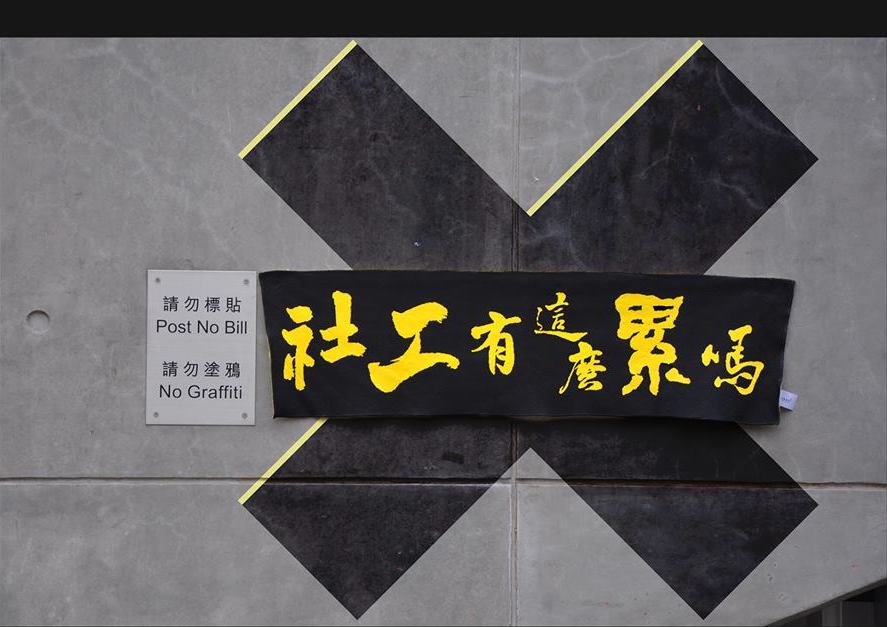 請勿標貼
Post No Bill
請勿塗鴉
No Graffiti
社工有這麼累嗎